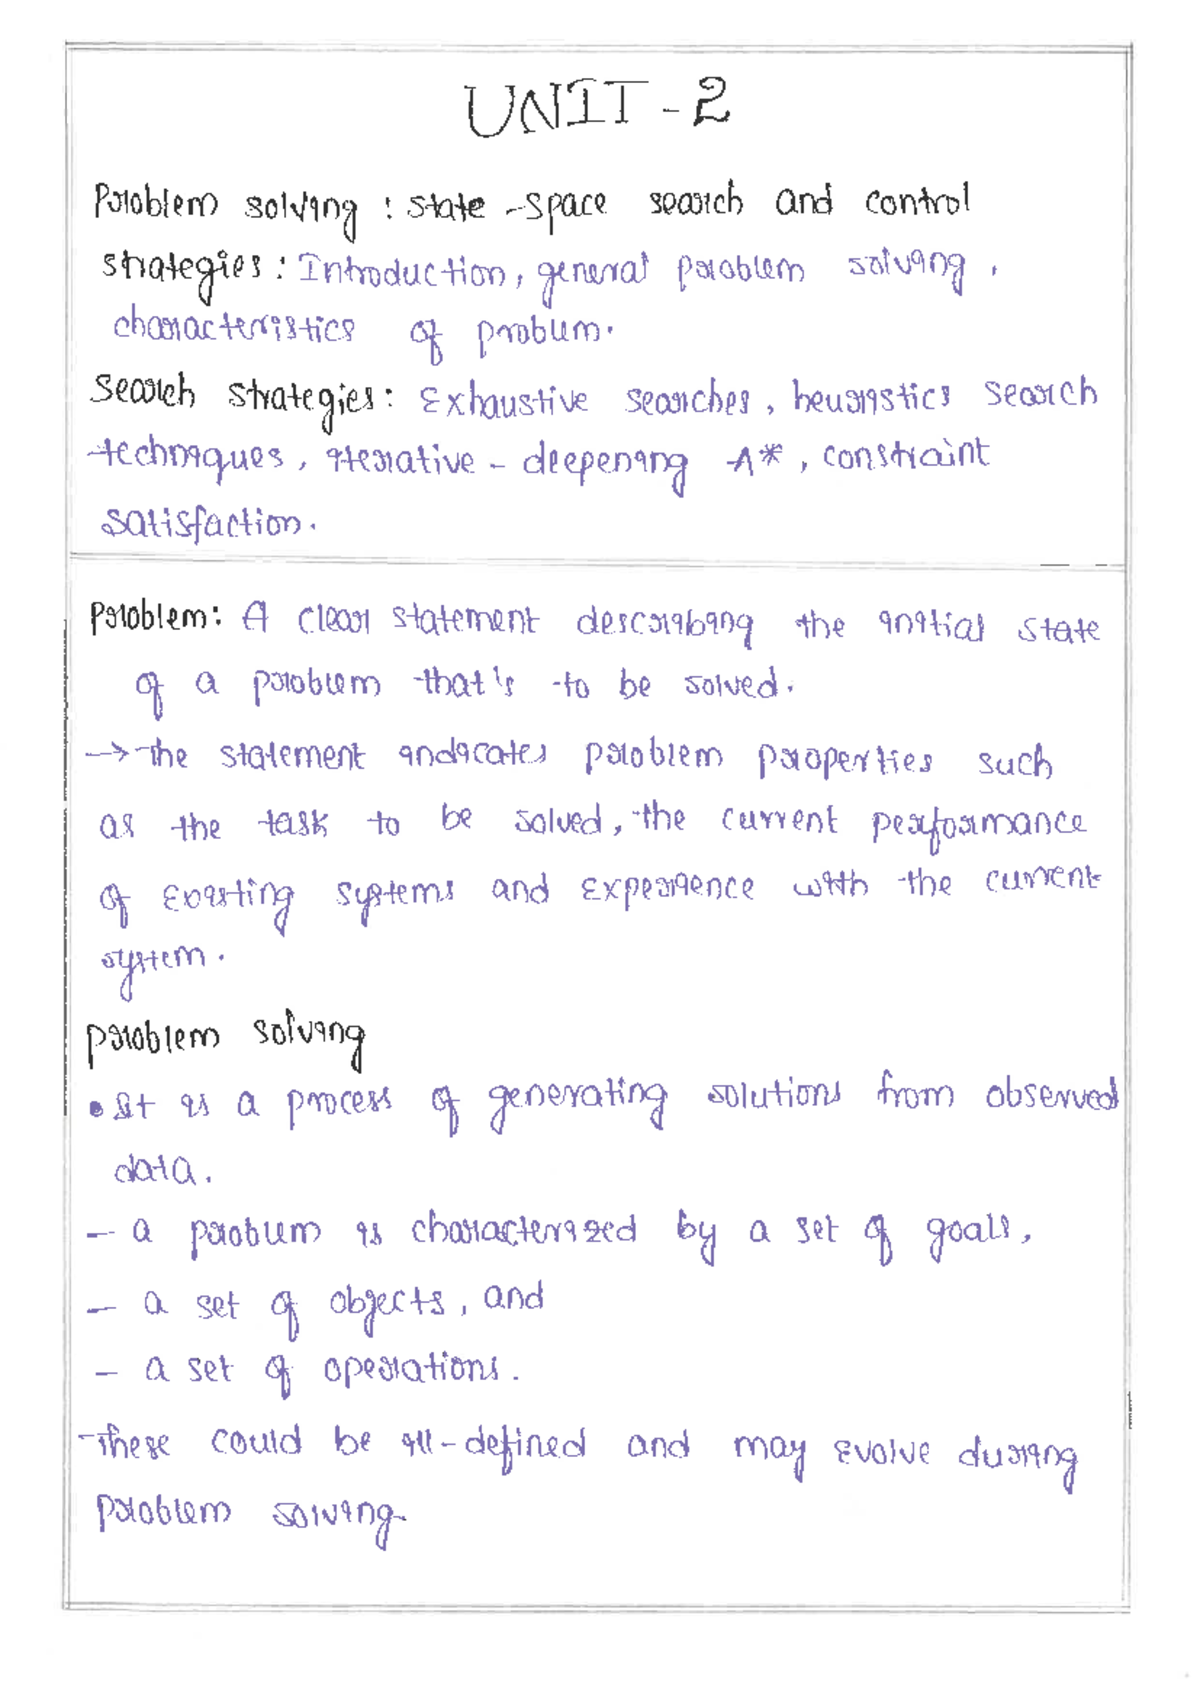 UNIT - 2
Problem solving : state - space search and control
strategies : Introduction, general problem solving,
characteristics of problem.
Search strategies : Exhaustive searches, heuristics search
techniques, iterative - deepening A*, constraint
satisfaction.
Problem: A clear statement describing the initial state
of a problem that's to be solved.
→ the statement indicates problem properties such
as the task to be solved, the current performance
of Existing systems and Experience with the current
system.
problem solving
• It is a process of generating solutions from observed
data.
- a problem is characterized by a set of goals,
- a set of objects, and
- a set of operations.
These could be ill-defined and may Evolve during
problem solving.